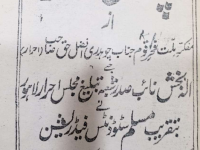 از
مفکر ملت فخر قوم جناب چوہدری افضل حق صاحب (احرار)
جسے
الٰہ بخش نائب صدر شعبہ تبلیغ مجلس احرار لاہور
نے
بتقریب مسلم سٹوڈنٹس فیڈریشن